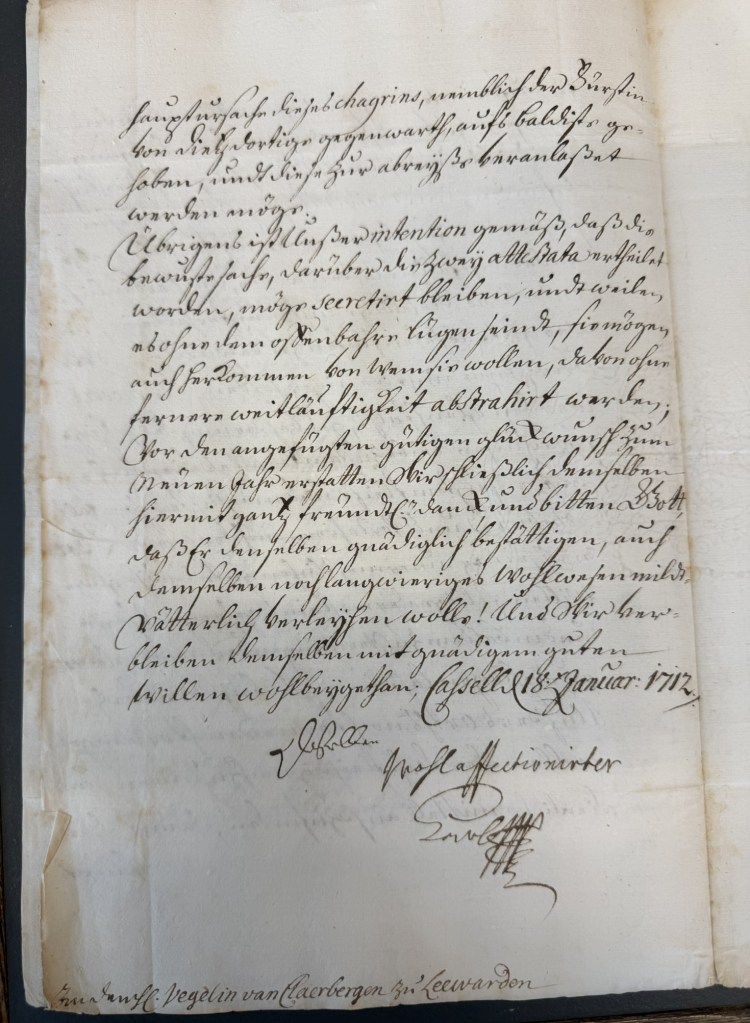 hauptursache dieses chagrins, nemblich der Fürstin
von Dietz dortige gegenwarth, aufs baldiste ge-
hoben, undt diese zur abreyße veranlaßet
werden möge.
Übrigens ist Unßer intention gemäß, daß die
bewuste sache, darüber die zwey attestata ertheilet
worden, möge secretirt bleiben, undt weilen
es ohne dem offenbahre lügen seindt, sie mögen
auch herkommen von wem sie wollen, davon ohne
fernere weitläufftigkeit abstrahirt werden;
Vor den angefügten gütigen glückwunsch zum
Neuen Jahr erstatten Wir schließlich demselben
hiermit gantz freündtl. danck und bitten Gott,
daß Er denselben gnädiglich bestättigen, auch
demselben noch langwieriges wohlwesen mildt-
vätterlich verleyhen wolle! Und Wir ver-
bleiben demselben mit gnädigem guten
willen wohlbeygethan; Cassell d. 18. Januar: 1712
Desselben
Wohl affectionirter
Carl
An den H. Vegelin van Claerbergen zu Leewarden